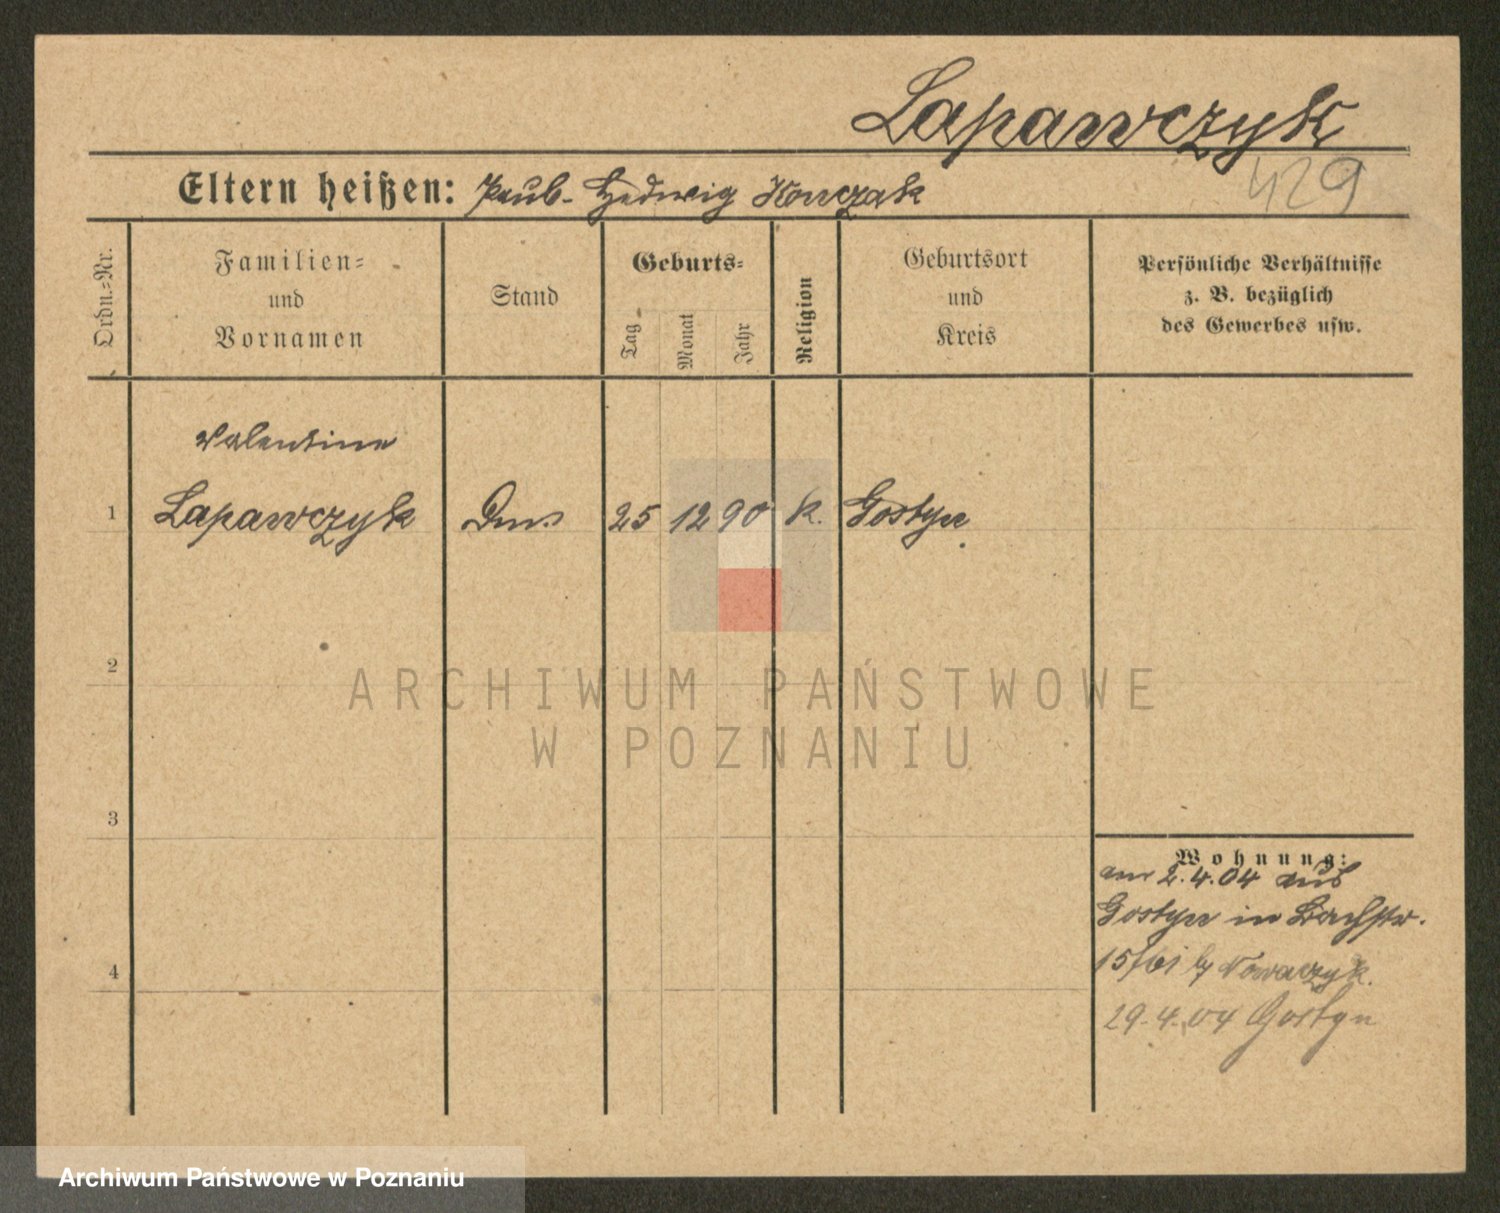 Lapawczyk
429
Eltern heißen: Paul - Hedwig Konczak
Ordn.-Nr.
Familien-
und
Vornamen
Stand
Geburts-
Tag
Monat
Jahr
Religion
Geburtsort
und
Kreis
Persönliche Verhältnisse
z. B. bezüglich
des Gewerbes usw.
Valentine
1 Lapawczyk 25 12 90 k. Gostyn
2
ARCHIWUM PAŃSTWOWE
W POZNANIU
3
Wohnung:
am 2.4.04 aus
Gostyn in Bachstr.
4
15/ Nowaczyk.
29.4.04 Gostyn
Archiwum Państwowe w Poznaniu